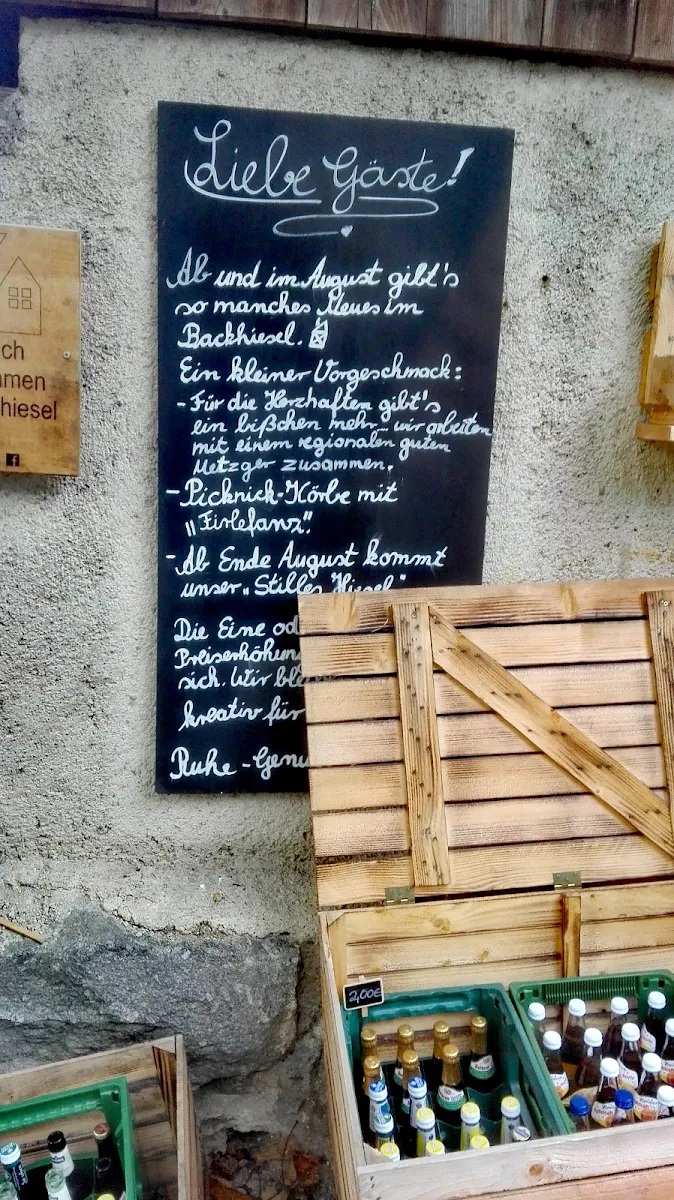 Liebe Gäste!
Ab und im August gibt's
so manches Neues im
Backhiesel.
Ein kleiner Vorgeschmack:
- Für die Herzhaften gibt's
ein bißchen mehr... wir arbeiten
mit einem regionalen guten
Metzger zusammen.
- Picknick-Körbe mit
"Firlefanz".
- Ab Ende August kommt
unser "Stilles Hiesel"
Die Eine od
Preiserhöhun
sich. Wir ble
kreativ für
Ruhe - Genu
ch
mmen
hiesel
2,00€